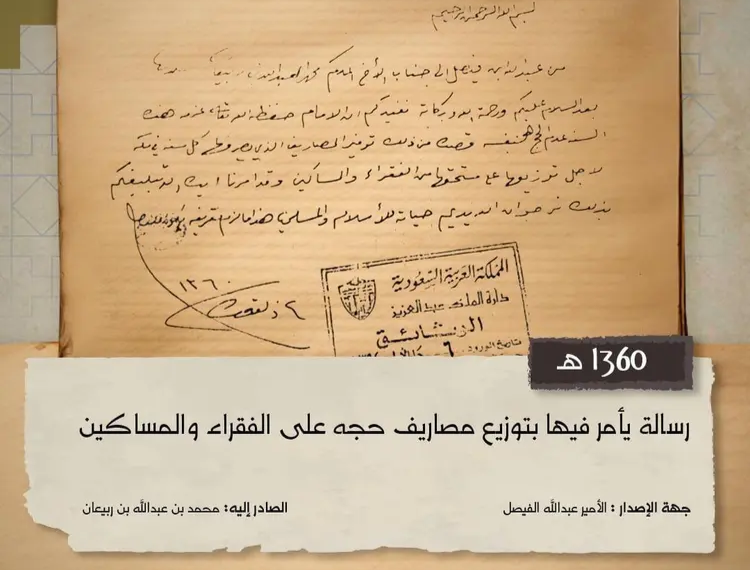 بسم الله الرحمن الرحيم
من عبدالله بن فيصل الى جناب الأخ المكرم محمد العبدالله بن ربيعان
بعد السلام عليكم ورحمة الله وبركاته نفيدكم ان الامام حفظه الله تعالى عزم هذه
السنه عدم الحج بنفسه قصده من ذلك توفير المصاريف الذي كل سنه في مكه
لاجل توزيعها على مستحقها من الفقراء والمساكين وقد امرنا تبليغكم
بذلك نرجو ان الله يديم حياته للأسلام والمسلمين هذا مالزم تعريفه
١٣٦٠
٢ ذ القعدة
المملكة العربية السعودية
دارة الملك عبد العزيز
الوثائق
تاريخ الورود
1360 هـ
رسالة يأمر فيها بتوزيع مصاريف حجه على الفقراء والمساكين
جهة الإصدار : الأمير عبدالله الفيصل
الصادر إليه: محمد بن عبدالله بن ربيعان